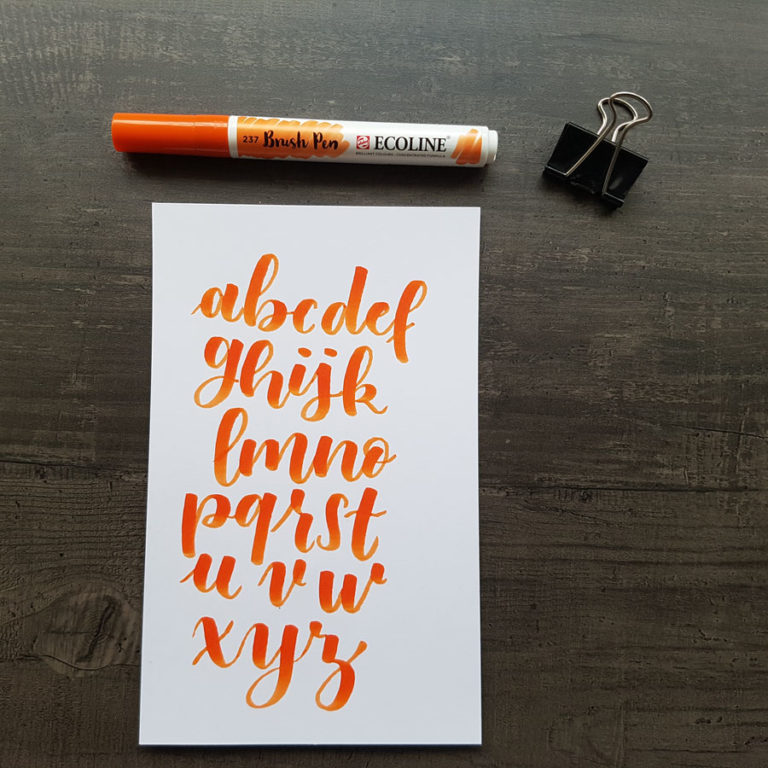 237 Brush Pen ECOLINE®
BRILLIANT COLOURS - CONCENTRATED FORMULA
abcdef
ghijk
lmno
pqrst
u v w
xyz